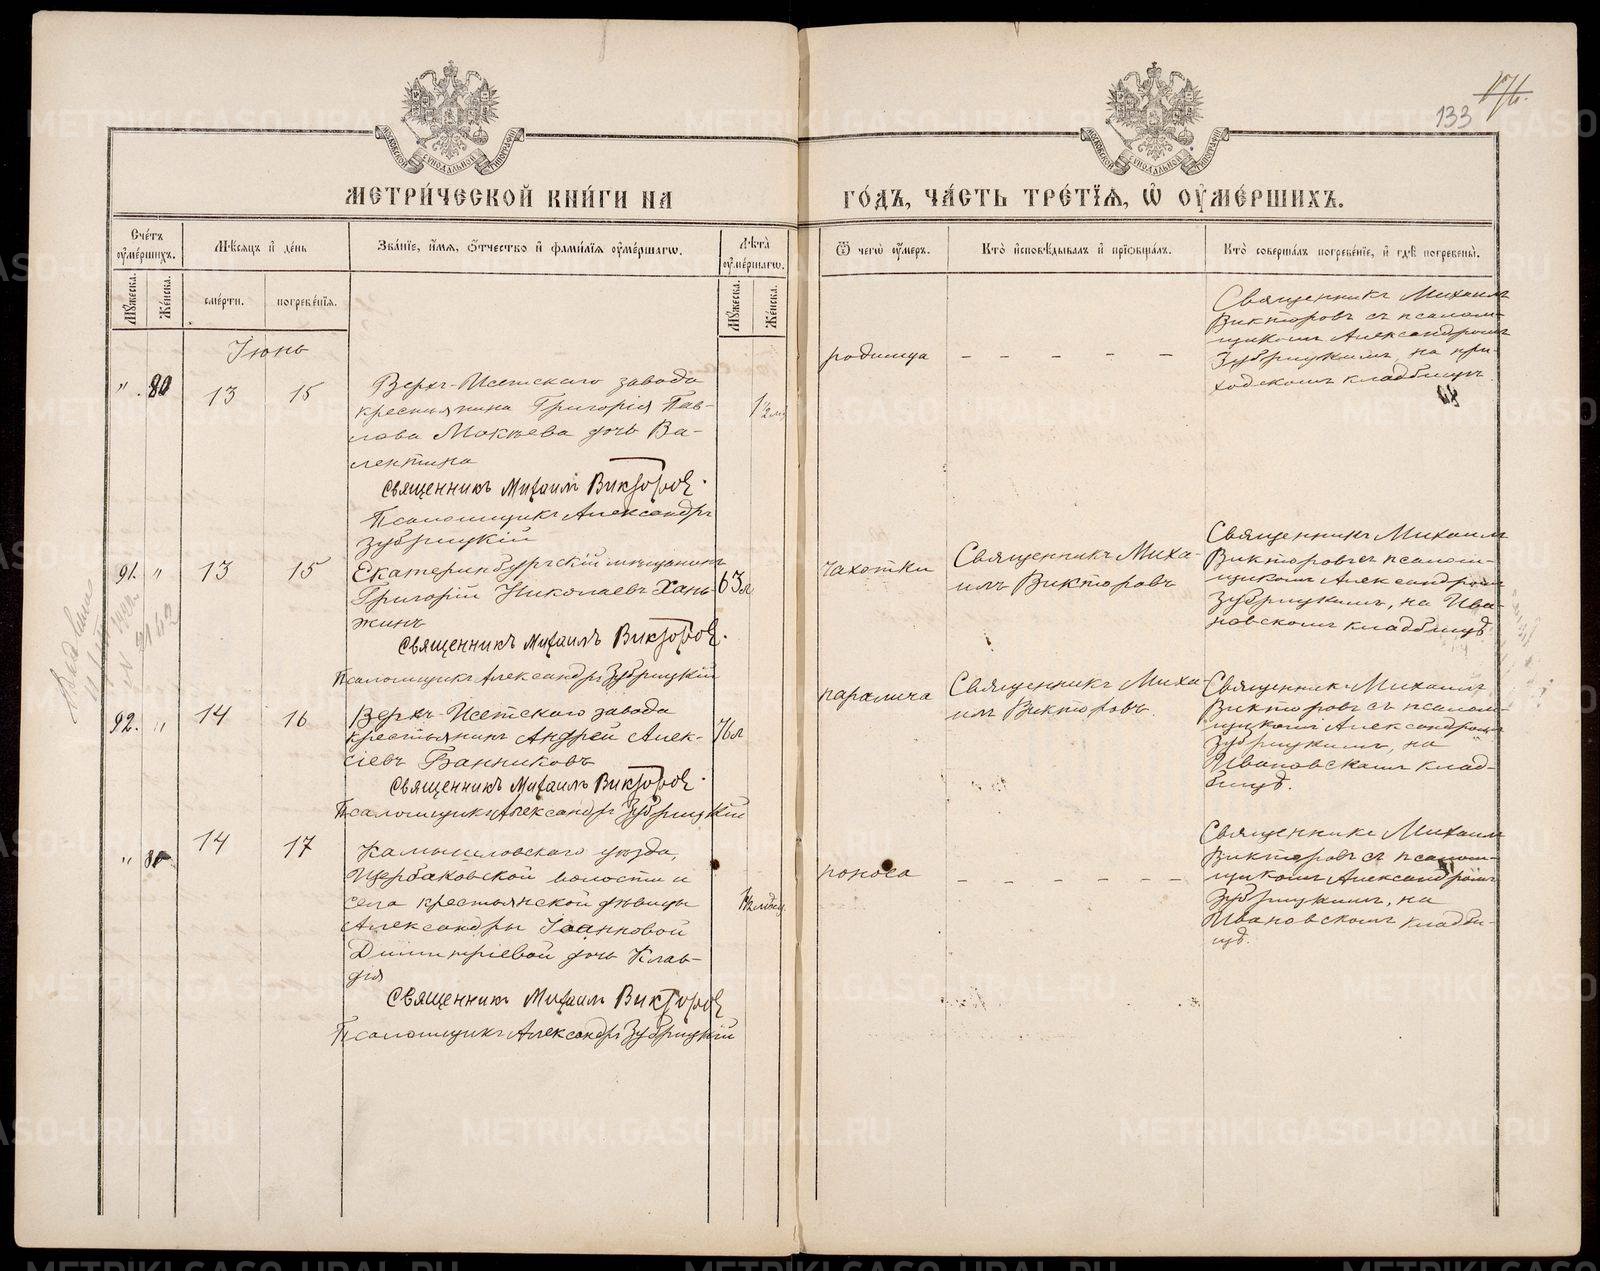 176.
133
МОСКОВСКОЙ СѴНОДАЛЬНОЙ ТИПОГРАФІИ
МОСКОВСКОЙ СѴНОДАЛЬНОЙ ТИПОГРАФІИ
МЕТРИ́ЧЕСКОЙ КНИ́ГИ НА ГО́ДЪ, ЧА́СТЬ ТРЕ́ТЇѦ, Ѡ҆ ОУ҆МЕ́РШИХЪ.
Сче́тъ оу҆ме́ршихъ.
Мꙋ́жеска.
Же́нска.
Мѣ́сѧцъ и҆ де́нь
сме́рти.
погребе́нїѧ.
Зва́нїе, и҆́мѧ, ѻ҆́тчество и҆ фами́лїѧ оу҆ме́ршагѡ.
Лѣ́та оу҆ме́ршагѡ.
Мꙋ́жеска.
Же́нска.
Ѿ чегѡ̀ оу҆́меръ.
Кто̀ и҆сповѣ́дывалъ и҆ прїѡбща́лъ.
Кто̀ соверша́лъ погребе́нїе, и҆ гдѣ̀ погребены̀.
Іюнь
" 80 13 15
Верхъ-Исетскаго завода
крестьянина Григорія Пав-
лова Мокѣева дочь Ва-
лентина
Священникъ Михаилъ Викторовъ.
Псаломщикъ Александръ
Зубрицкій
1½ м.
родимца
Священникъ Михаилъ
Викторовъ съ псалом-
щикомъ Александромъ
Зубрицкимъ, на при-
ходскомъ кладбищѣ.
91. " 13 15
Екатеринбургскій мѣщанинъ
Григорій Николаевъ Хань-
жинъ
Священникъ Михаилъ Викторовъ.
Псаломщикъ Александръ Зубрицкій
63 л
чахотки
Священникъ Миха-
илъ Викторовъ
Священникъ Михаилъ
Викторовъ съ псалом-
щикомъ Александромъ
Зубрицкимъ, на Ива-
новскомъ кладбищѣ.
92. " 14 16
Верхъ-Исетскаго завода
крестьянинъ Андрей Алек-
сіевъ Банниковъ
Священникъ Михаилъ Викторовъ.
Псаломщикъ Александръ Зубрицкій
76 л
паралича
Священникъ Миха-
илъ Викторовъ.
Священникъ Михаилъ
Викторовъ съ псалом-
щикомъ Александромъ
Зубрицкимъ, на
Ивановскомъ клад-
бищѣ.
" 14 17
Камышловскаго уѣзда,
Щербаковской волости и
села крестьянской дѣвицы
Александры Іоанновой
Димитріевой дочь Клав-
дія
Священникъ Михаилъ Викторовъ
Псаломщикъ Александръ Зубрицкій
поноса
Священникъ Михаилъ
Викторовъ съ псалом-
щикомъ Александромъ
Зубрицкимъ, на
Ивановскомъ кладби-
щѣ.
METRIKI.GASO-URAL.RU